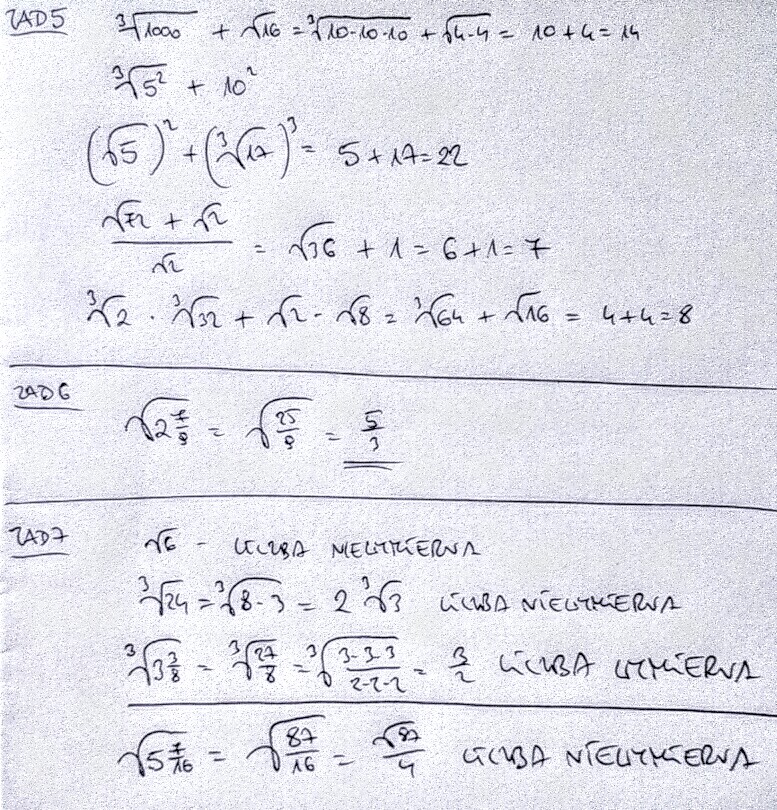 ZAD5 ∛1000 + √16 = ∛10·10·10 + √4·4 = 10+4=14
∛5² + 10²
(√5)² + (∛17)³ = 5+17=22
(√72 + √2)/√2 = √36 + 1 = 6+1=7
∛2 · ∛32 + √2 · √8 = ∛64 + √16 = 4+4=8
ZAD6 √2 7/9 = √25/9 = 5/3
ZAD7 √6 - LICZBA NIEWYMIERNA
∛24 = ∛8·3 = 2∛3 LICZBA NIEWYMIERNA
∛3 3/8 = ∛27/8 = ∛(3·3·3)/(2·2·2) = 3/2 LICZBA WYMIERNA
√5 7/16 = √87/16 = √87/4 LICZBA NIEWYMIERNA